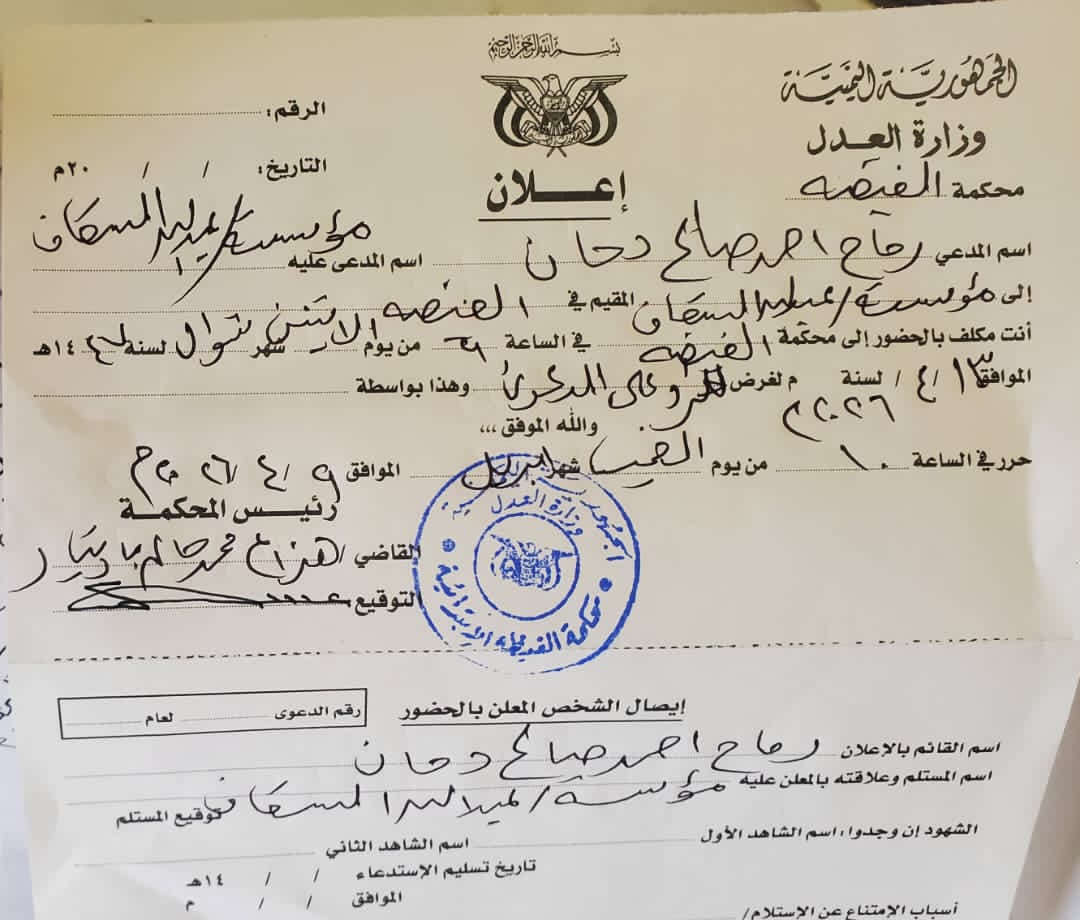 بسم الله الرحمن الرحيم
الجمهورية اليمنية
وزارة العدل
محكمة الغيضه
الرقم:
التاريخ: / / ٢٠م
إعلان
اسم المدعي رماح احمد صالح دحان اسم المدعى عليه مؤسسة/ السقاف
إلى مؤسسة/ السقاف المقيم في الغيضه
أنت مكلف بالحضور إلى محكمة الغيضه في الساعة ٩ من يوم الاثنين شهر شوال لسنة ١٤٤٧هـ
الموافق ١٣/ ٤/ لسنة ٢٠٢٦م لغرض للرد على الدعوى وهذا بواسطة
والله الموفق ،،،
حرر في الساعة ١٠ من يوم الخميس شهر ابريل الموافق ٩/ ٤/ ٢٠٢٦م
رئيس المحكمة
القاضي/ هزاع محمد
التوقيع
الجمهورية اليمنية
وزارة العدل
محكمة الغيضة الابتدائية
إيصال الشخص المعلن بالحضور
رقم الدعوى لعام
اسم القائم بالإعلان رماح احمد صالح دحان
اسم المستلم وعلاقته بالمعلن عليه مؤسسة/ السقاف توقيع المستلم
الشهود إن وجدوا، اسم الشاهد الأول اسم الشاهد الثاني
تاريخ تسليم الإستدعاء / / ١٤هـ
الموافق / / م
أسباب الإمتناع عن الإستلام/